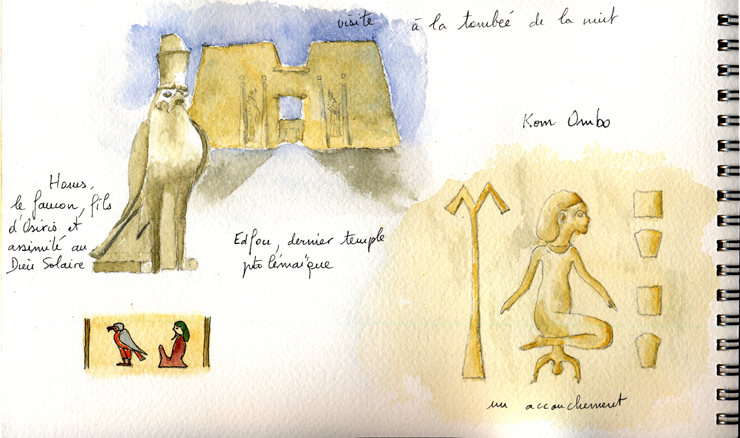 visite à la tombeé de la nuit
Kom Ombo
Horus,
le faucon, fils
d'Osiris et
assimité au
Dieu Solaire
Edfou, dernier temple
ptolémaïque
un accouchement